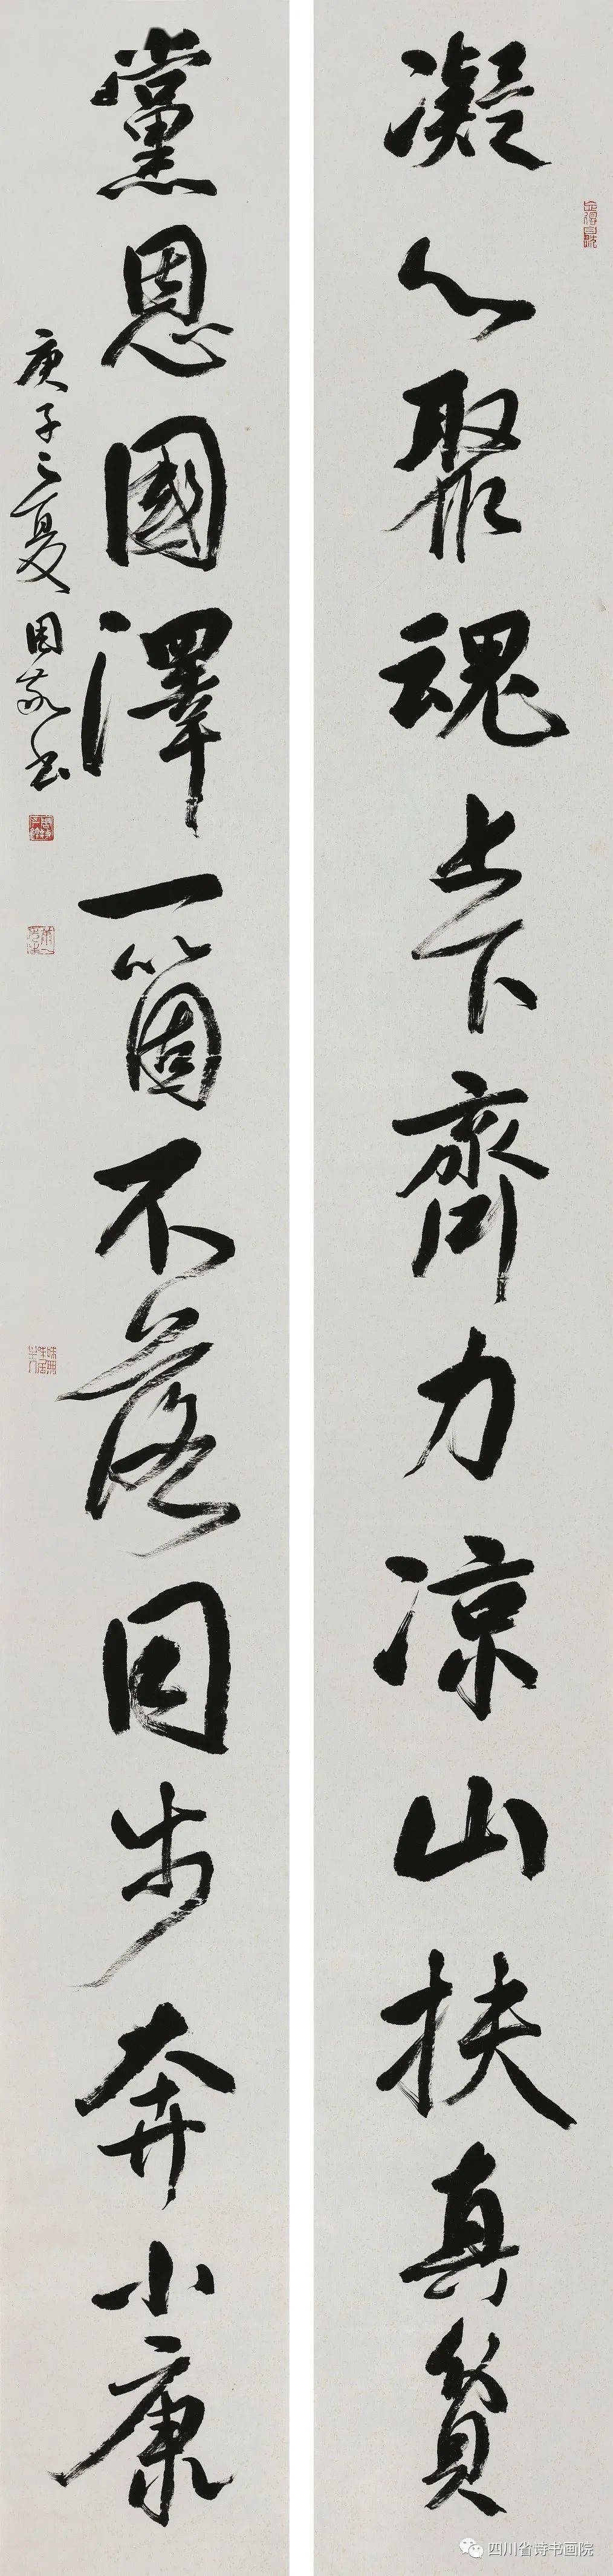 凝心聚魂上下齊力凉山扶真貧
黨恩國澤一箇不落同步奔小康
庚子之夏周敬书
四川省诗书画院